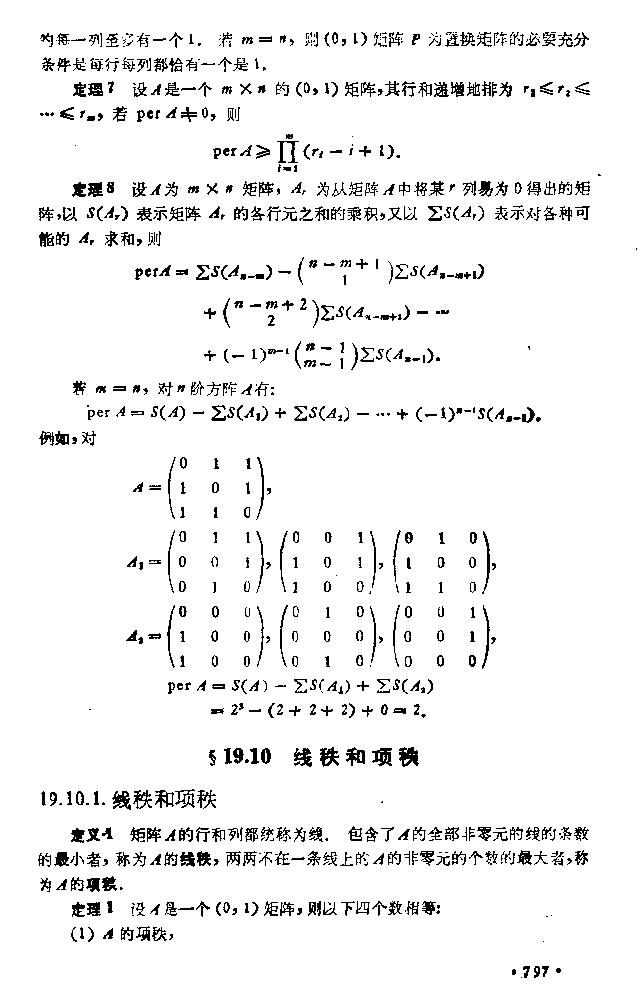 的每一列至多有一个1. 若 m = n, 则 (0, 1) 矩阵 P 为置换矩阵的必要充分
条件是每行每列都恰有一个是 1.
定理7 设 A 是一个 m × n 的 (0, 1) 矩阵,其行和递增地排为 r₁ ≤ r₂ ≤
… ≤ rₘ, 若 per A ≠ 0, 则
per A ≥ ∏_{i=1}^{m} (rᵢ − i + 1).
定理8 设 A 为 m × n 矩阵, Aᵣ 为从矩阵 A 中将某 r 列易为 0 得出的矩
阵,以 S(Aᵣ) 表示矩阵 Aᵣ 的各行元之和的乘积,又以 ∑S(Aᵣ) 表示对各种可
能的 Aᵣ 求和,则
perA = ∑S(A_{n−m}) − \binom{n − m + 1}{1} ∑S(A_{n−m+1})
+ \binom{n − m + 2}{2} ∑S(A_{n−m+2}) − …
+ (−1)^{m−1} \binom{n − 1}{m − 1} ∑S(A_{n−1}).
若 m = n, 对 n 阶方阵 A 有:
per A = S(A) − ∑S(A₁) + ∑S(A₂) − … + (−1)^{n−1}S(A_{n−1}).
例如,对
0 1 1
A = 1 0 1 ,
1 1 0
0 1 1 0 0 1 0 1 0
A₁ = 0 0 1 , 1 0 1 , 1 0 0 ,
0 1 0 1 0 0 1 1 0
0 0 0 0 1 0 0 0 1
A₂ = 1 0 0 , 0 0 0 , 0 0 1 ,
1 0 0 0 1 0 0 0 0
per A = S(A) − ∑S(A₁) + ∑S(A₂)
= 2³ − (2 + 2 + 2) + 0 = 2.
§ 19.10 线秩和项秩
19.10.1. 线秩和项秩
定义1 矩阵 A 的行和列都统称为线. 包含了 A 的全部非零元的线的条数
的最小者,称为 A 的线秩,两两不在一条线上的 A 的非零元的个数的最大者,称
为 A 的项秩.
定理1 设 A 是一个 (0, 1) 矩阵,则以下四个数相等:
(1) A 的项秩,
• 797 •